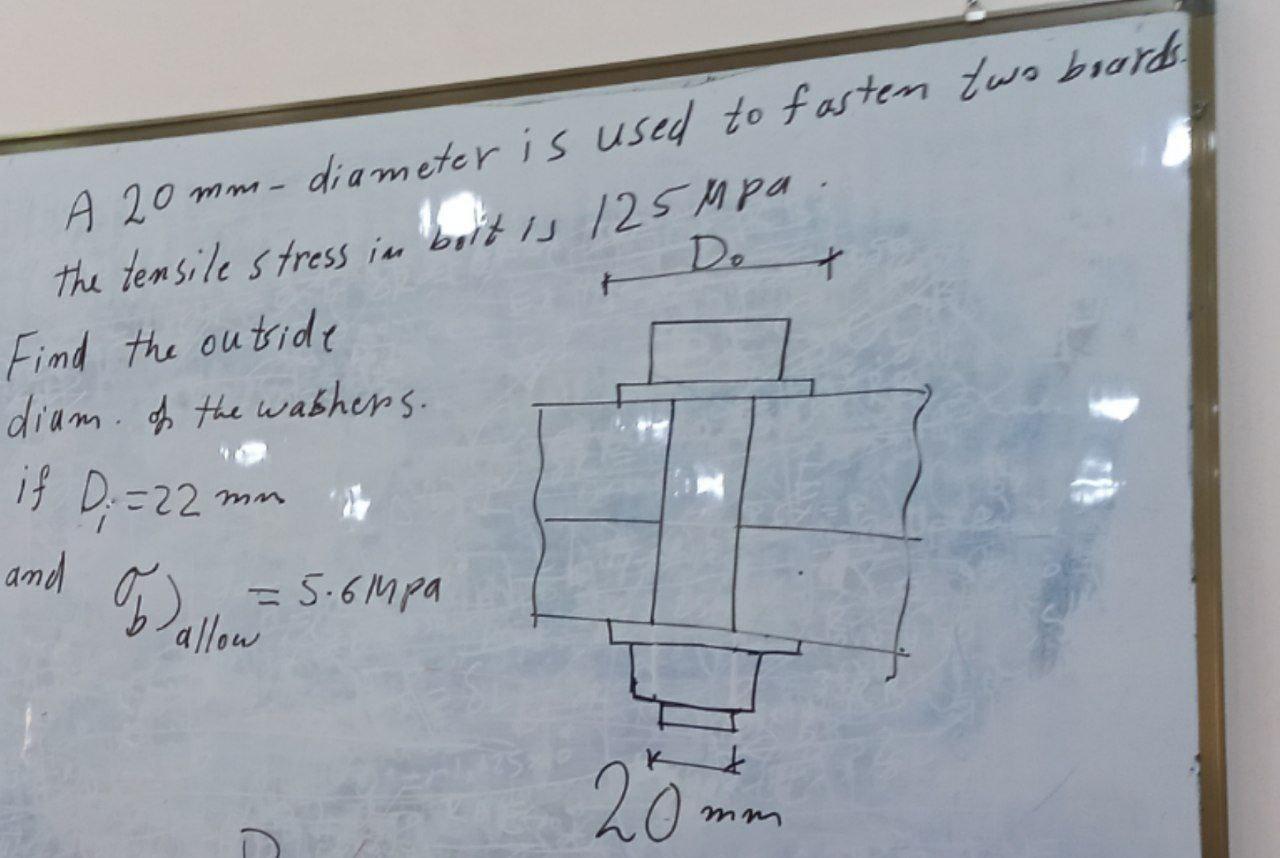 A 20 mm- diameter is used to fasten two boards.
the tensile stress in bolt is 125 Mpa.
D₀
Find the outside
diam. of the washers.
if Dᵢ=22 mm
and σb)allow = 5.6 Mpa
20 mm
D